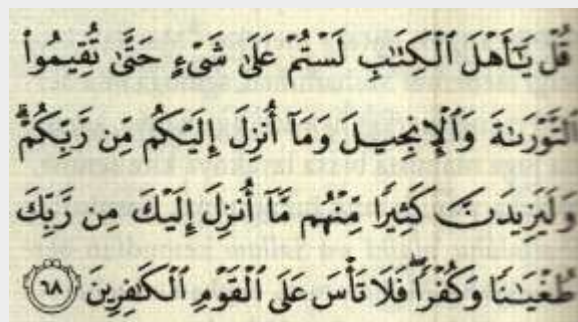 قُلْ يَٰٓأَهْلَ ٱلْكِتَٰبِ لَسْتُمْ عَلَىٰ شَىْءٍ حَتَّىٰ تُقِيمُوا۟
ٱلتَّوْرَىٰةَ وَٱلْإِنجِيلَ وَمَآ أُنزِلَ إِلَيْكُم مِّن رَّبِّكُمْ ۗ
وَلَيَزِيدَنَّ كَثِيرًا مِّنْهُم مَّآ أُنزِلَ إِلَيْكَ مِن رَّبِّكَ
طُغْيَٰنًا وَكُفْرًا ۖ فَلَا تَأْسَ عَلَى ٱلْقَوْمِ ٱلْكَٰفِرِينَ ٦٨